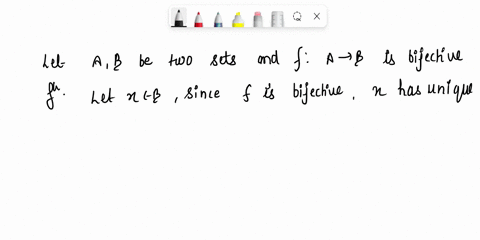 Let A, B be two sets and f: A → B is bijective
fn. Let x ∈ B, since f is bijective, x has unique